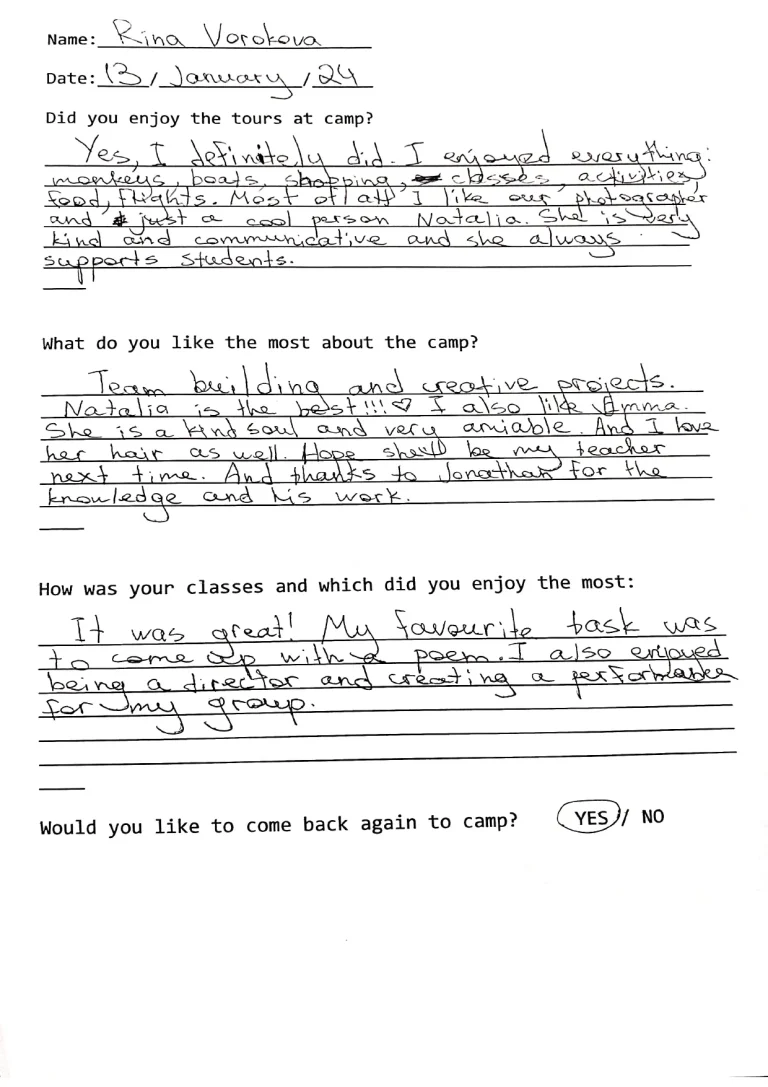 Name: Rina Vorokova
Date: 13 / January / 24
Did you enjoy the tours at camp?
Yes, I definitely did. I enjoyed everything:
monkeys, boats, shopping, classes, activities,
food, flights. Most of all I like our photographer
and just a cool person Natalia. She is very
kind and communicative and she always
supports students.
What do you like the most about the camp?
Team building and creative projects.
Natalia is the best!!! ♡ I also like Emma.
She is a kind soul and very amiable. And I love
her hair as well. Hope she'll be my teacher
next time. And thanks to Jonathan for the
knowledge and his work.
How was your classes and which did you enjoy the most:
It was great! My favourite task was
to come up with a poem. I also enjoyed
being a director and creating a performance
for my group.
Would you like to come back again to camp? YES / NO